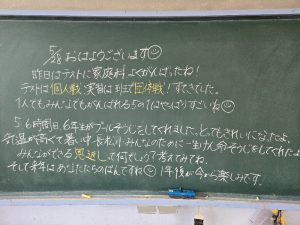 5/28 おはようございます☺
昨日はテストに家庭科よくがんばったね!
テストは個人戦!実習は班で団体戦!すてきでした。
1人でもみんなでもがんばれる5の1はやっぱりすごいね☺
5 6時間目6年生がプールそうじをしてくれました。とってもきれいになったよ。
気温が高くて暑い中 長小みんなのために一生けん命そうじをしてくれたよ
みんなができる恩返しって何でしょう?考えてみてね。
そして来年はあなたたちのばんですね☺ 1年後が今から楽しみです。